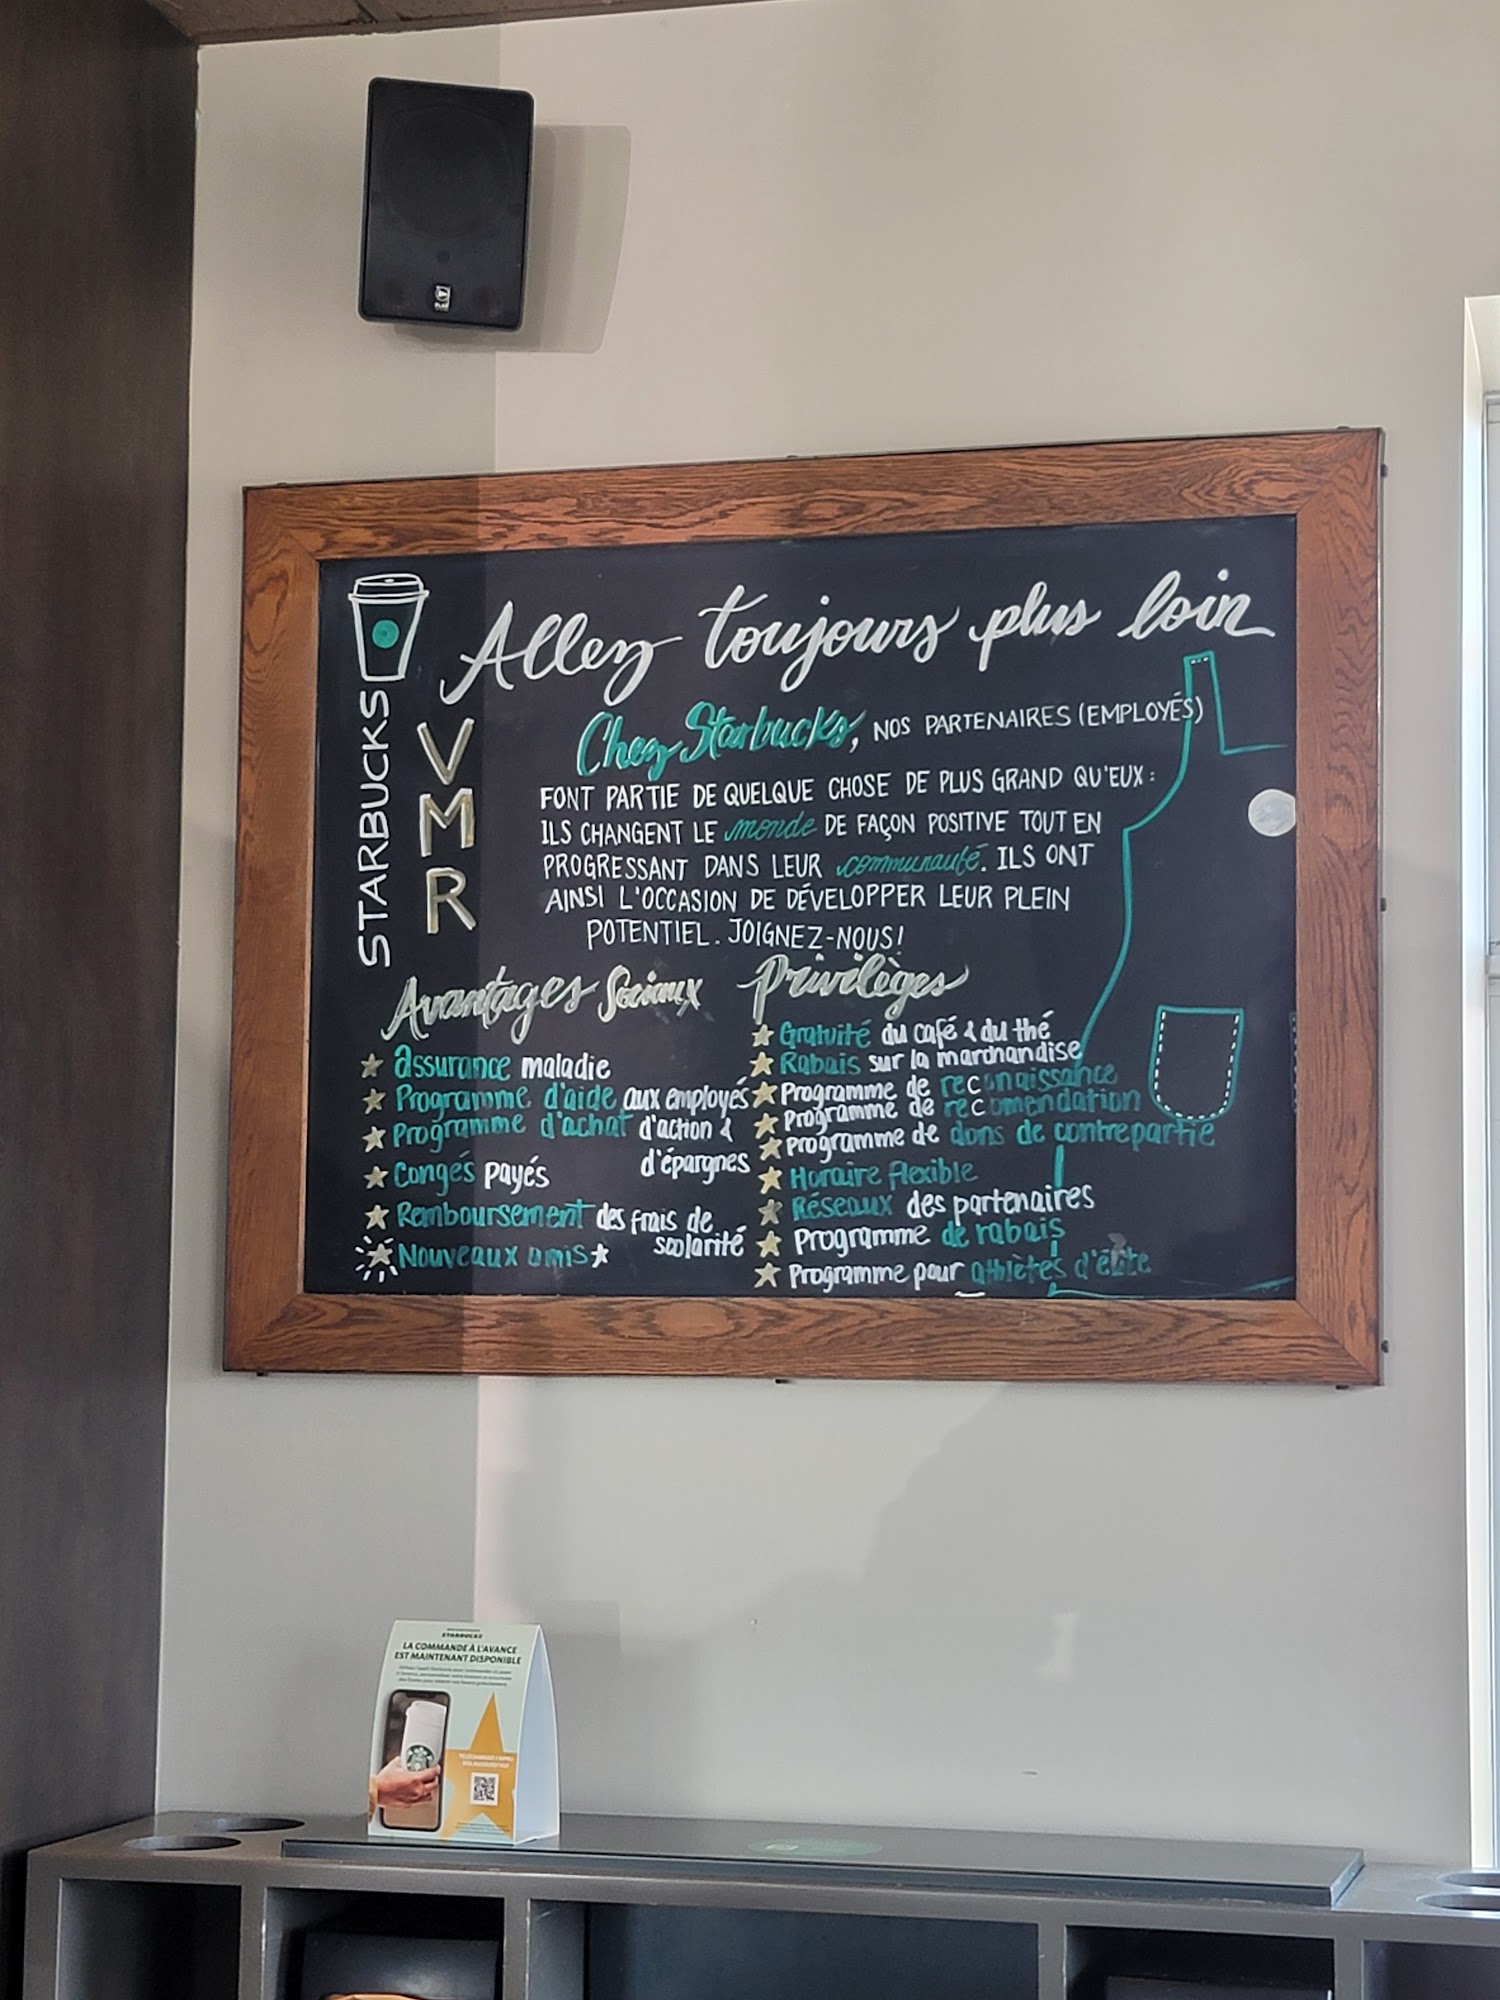 Allez toujours plus loin
STARBUCKS
VMR
Chez Starbucks, NOS PARTENAIRES (EMPLOYÉS)
FONT PARTIE DE QUELQUE CHOSE DE PLUS GRAND QU'EUX :
ILS CHANGENT LE monde DE FAÇON POSITIVE TOUT EN
PROGRESSANT DANS LEUR communauté. ILS ONT
AINSI L'OCCASION DE DÉVELOPPER LEUR PLEIN
POTENTIEL. JOIGNEZ-NOUS!
Avantages Sociaux
assurance maladie
Programme d'aide aux employés
Programme d'achat d'action &
d'épargnes
Congés payés
Remboursement des frais de
scolarité
Nouveaux amis
Privilèges
Gratuité du café & du thé
Rabais sur la marchandise
Programme de reconaissance
Programme de recomendation
Programme de dons de contrepartie
Horaire flexible
Réseaux des partenaires
Programme de rabais
Programme pour athlètes d'élite
STARBUCKS
LA COMMANDE À L'AVANCE
EST MAINTENANT DISPONIBLE